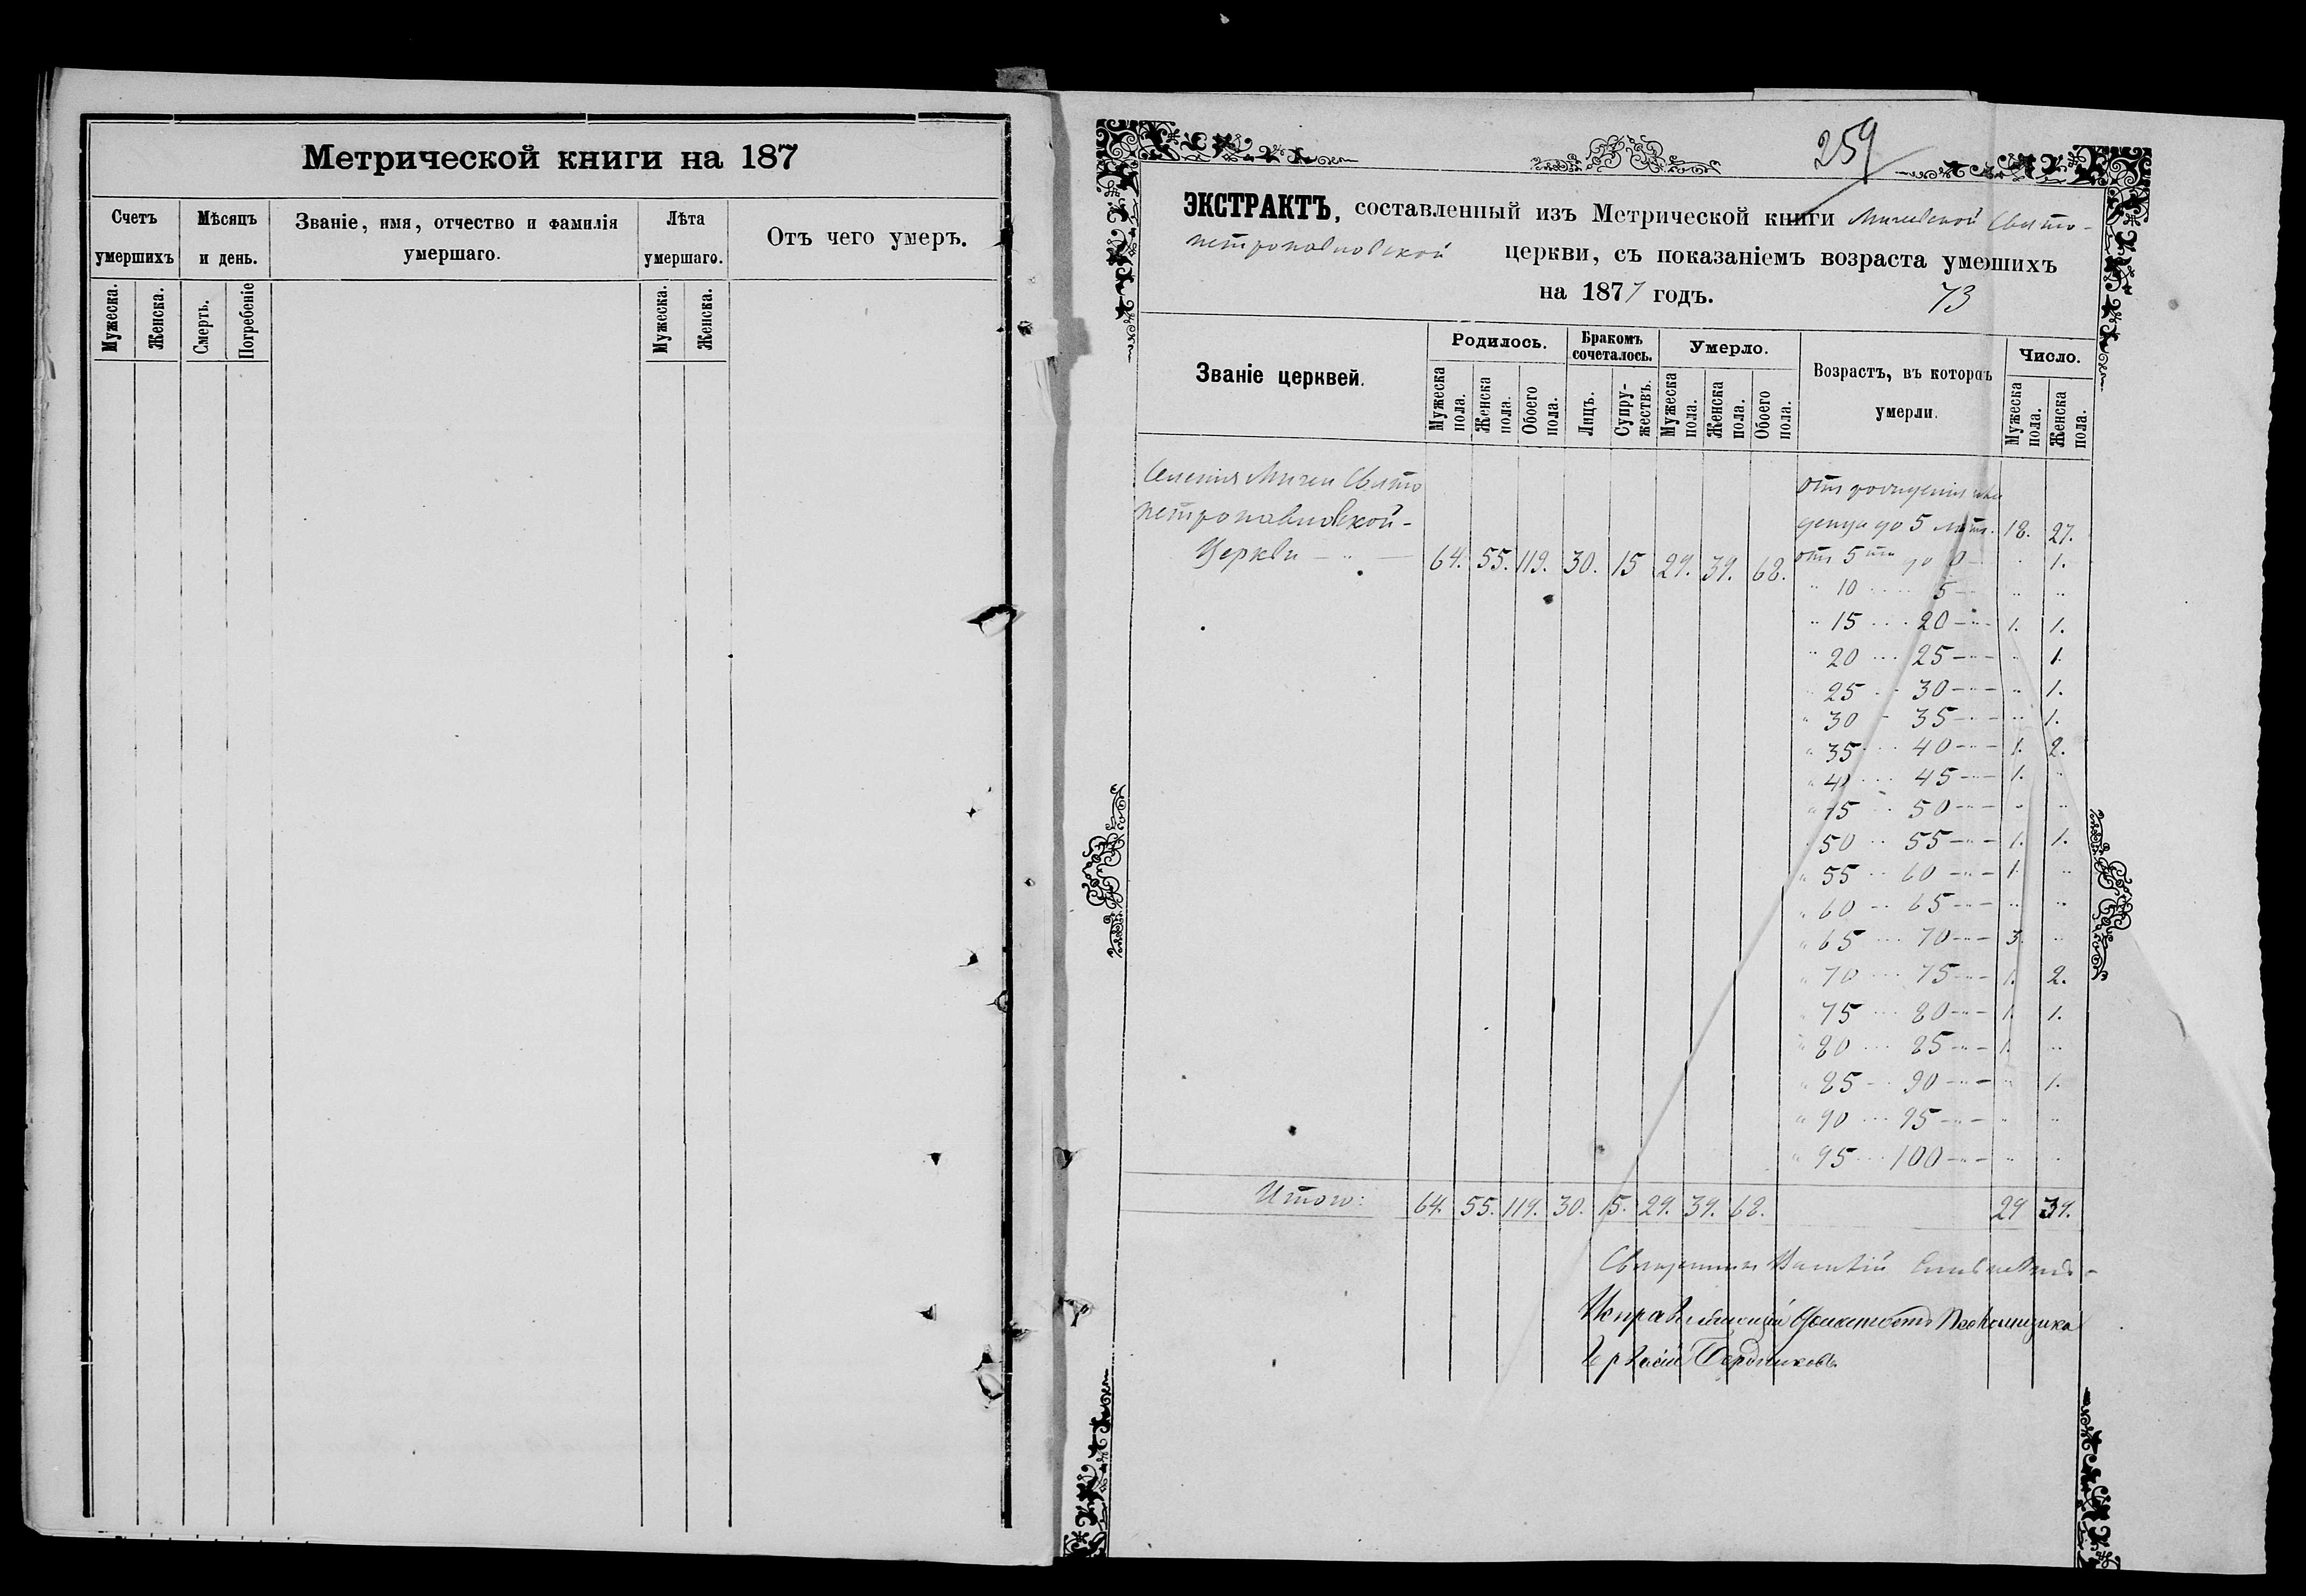 Метрической книги на 187
Счетъ умершихъ
Мѣсяцъ и день.
Званіе, имя, отчество и фамилія умершаго.
Лѣта умершаго.
Отъ чего умеръ.
Мужеска.
Женска.
Смерть.
Погребеніе
Мужеска.
Женска.
259
ЭКСТРАКТЪ, составленный изъ Метрической книги Свято-
петропавловской церкви, съ показаніемъ возраста умершихъ
на 1877 годъ.
73
Званіе церквей.
Родилось.
Бракомъ сочеталось.
Умерло.
Возрастъ, въ которомъ умерли.
Число.
Мужеска пола.
Женска пола.
Обоего пола.
Лицъ.
Супружествъ.
Мужеска пола.
Женска пола.
Обоего пола.
Мужеска пола.
Женска пола.
Селенія Мичеи Свято
петропавловской-
Церкви — " — 64. 55. 119. 30. 15 29. 39. 68.
отъ рожденія
до 5 лѣтъ. 18. 27.
отъ 5ти до 10 — " 1.
" 10 .... 15 — " "
" 15 ... 20 — " — 1. 1.
" 20 ... 25 — " — " 1.
" 25 ... 30 — " — " 1.
" 30 - 35 — " — " 1.
" 35 ... 40 — " — 1. 2.
" 40 ... 45 — " — 1. "
" 45 ... 50 — " — " "
" 50 .. 55 — " — 1. 1.
" 55 .. 60 — " — 1. "
" 60 .. 65 — " — " "
" 65 ... 70 — " — 3. "
" 70 ... 75 — " — 1. 2.
" 75 ... 80 — " — 1. 1.
" 80 ... 85 — " — 1. "
" 85 .. 90 — " — " 1.
" 90 ... 95 — " — " "
" 95 ... 100 — " — " "
Итого: 64. 55. 119. 30. 15. 29. 39. 68. 29 39.
Священникъ
Исправляющій должность Псаломщика